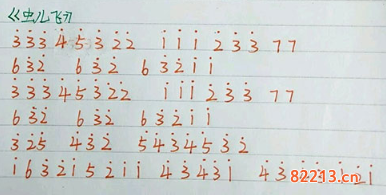 《虫儿飞》
3̇3̇3̇ 4̇ 5̇ 3̇ 2̇2̇ 1̇ 1̇ 1̇ 2̇ 3̇ 3̇ 77
6 3̇2̇ 6 3̇2̇ 6 3̇2̇1̇1̇
3̇3̇3̇4̇5̇3̇2̇2̇ 1̇1̇1̇2̇3̇3̇ 77
6 3̇2̇ 6 3̇2̇ 6 3̇2̇1̇1̇
3̇2̇5 4̇3̇2̇ 5̇4̇3̇4̇5̇3̇2̇
1̇63̇2̇1̇52̇1̇1̇ 4̇3̇4̇3̇1̇ 4̇3̇ 2̇1̇
82213.cn